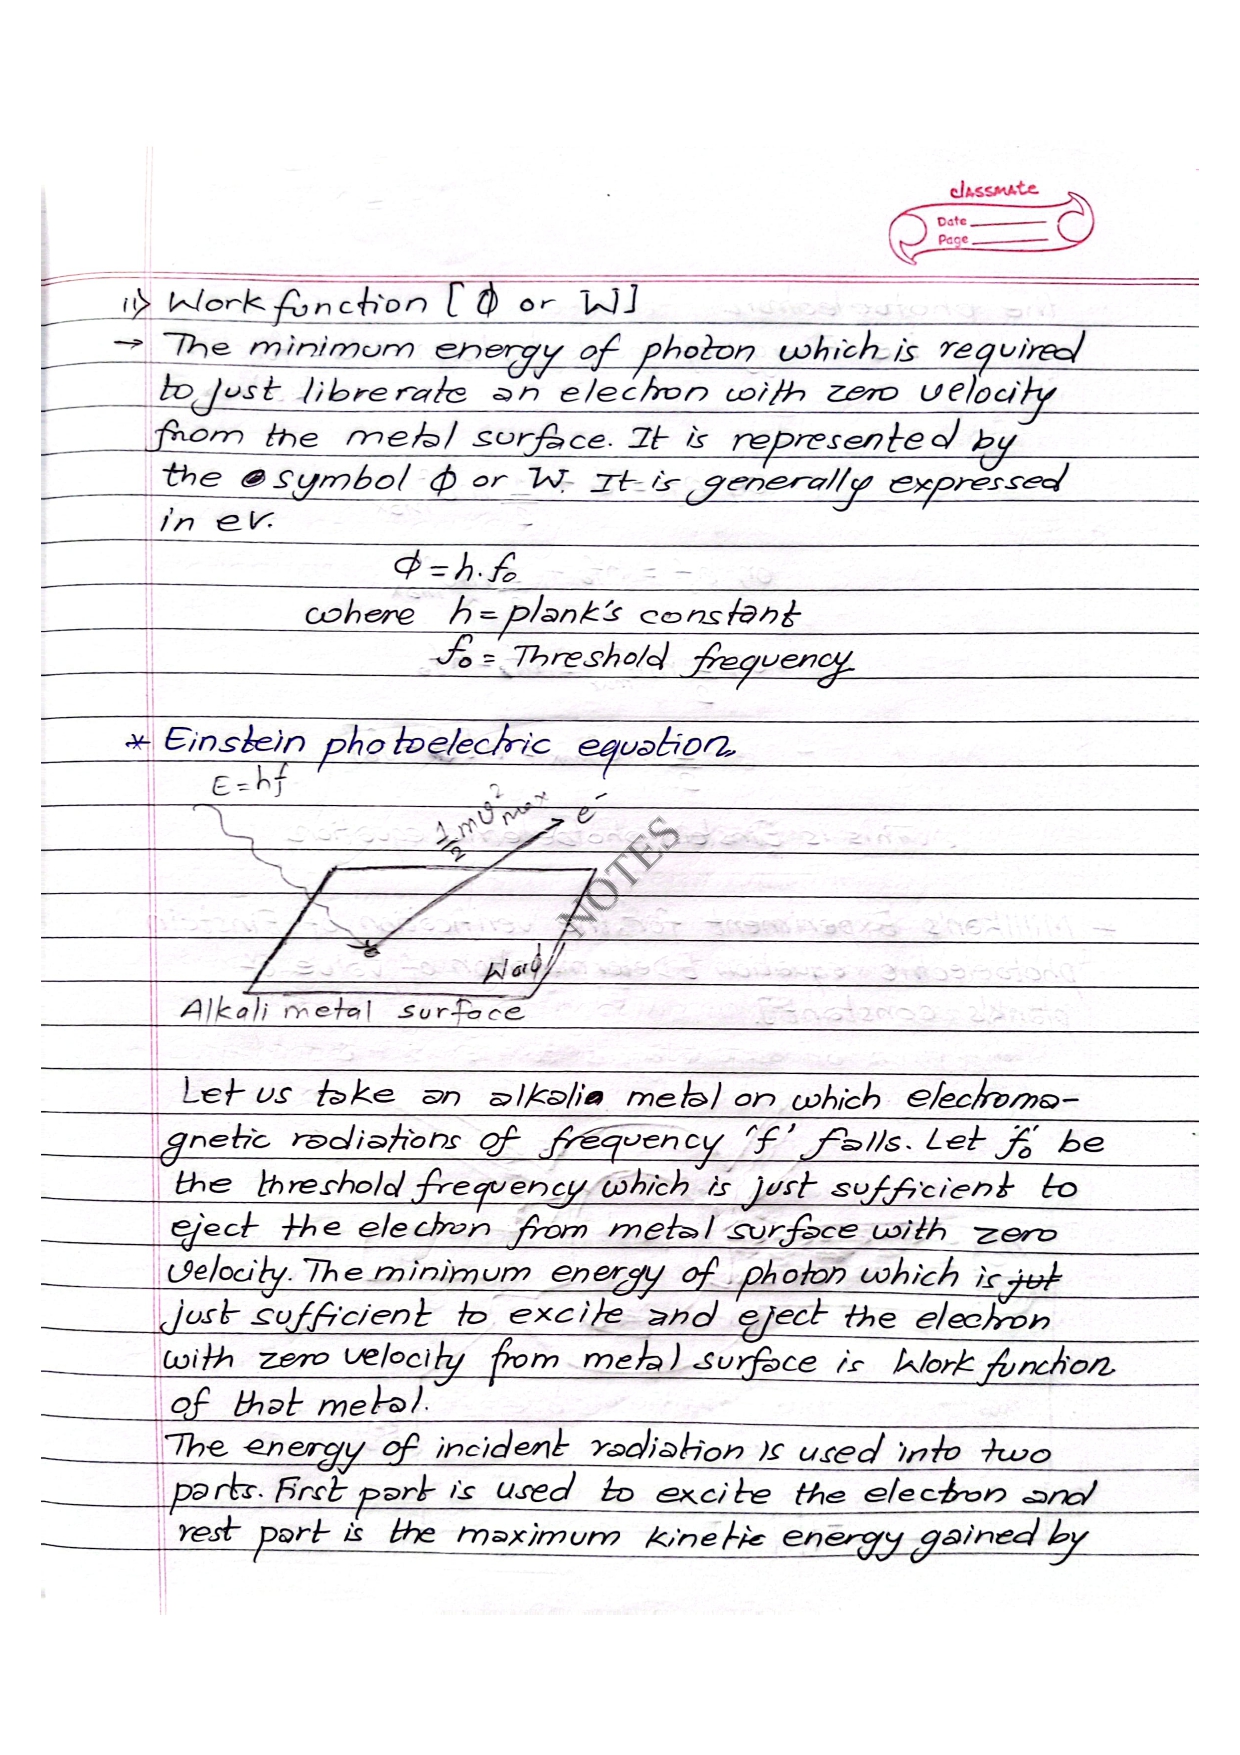 classmate
Date
Page
ii) Work function [ Φ or W]
→ The minimum energy of photon which is required
to just librerate an electron with zero velocity
from the metal surface. It is represented by
the symbol Φ or W. It is generally expressed
in ev.
Φ = h.f₀
where h = plank's constant
f₀ = Threshold frequency
* Einstein photoelectric equation.
E = hf
½mv²max
e⁻
NOTES
W or Φ
Alkali metal surface
Let us take an alkali metal on which electroma-
gnetic radiations of frequency 'f' falls. Let 'f₀' be
the threshold frequency which is just sufficient to
eject the electron from metal surface with zero
velocity. The minimum energy of photon which is jut
just sufficient to excite and eject the electron
with zero velocity from metal surface is Work function
of that metal.
The energy of incident radiation is used into two
parts. First part is used to excite the electron and
rest part is the maximum kinetic energy gained by